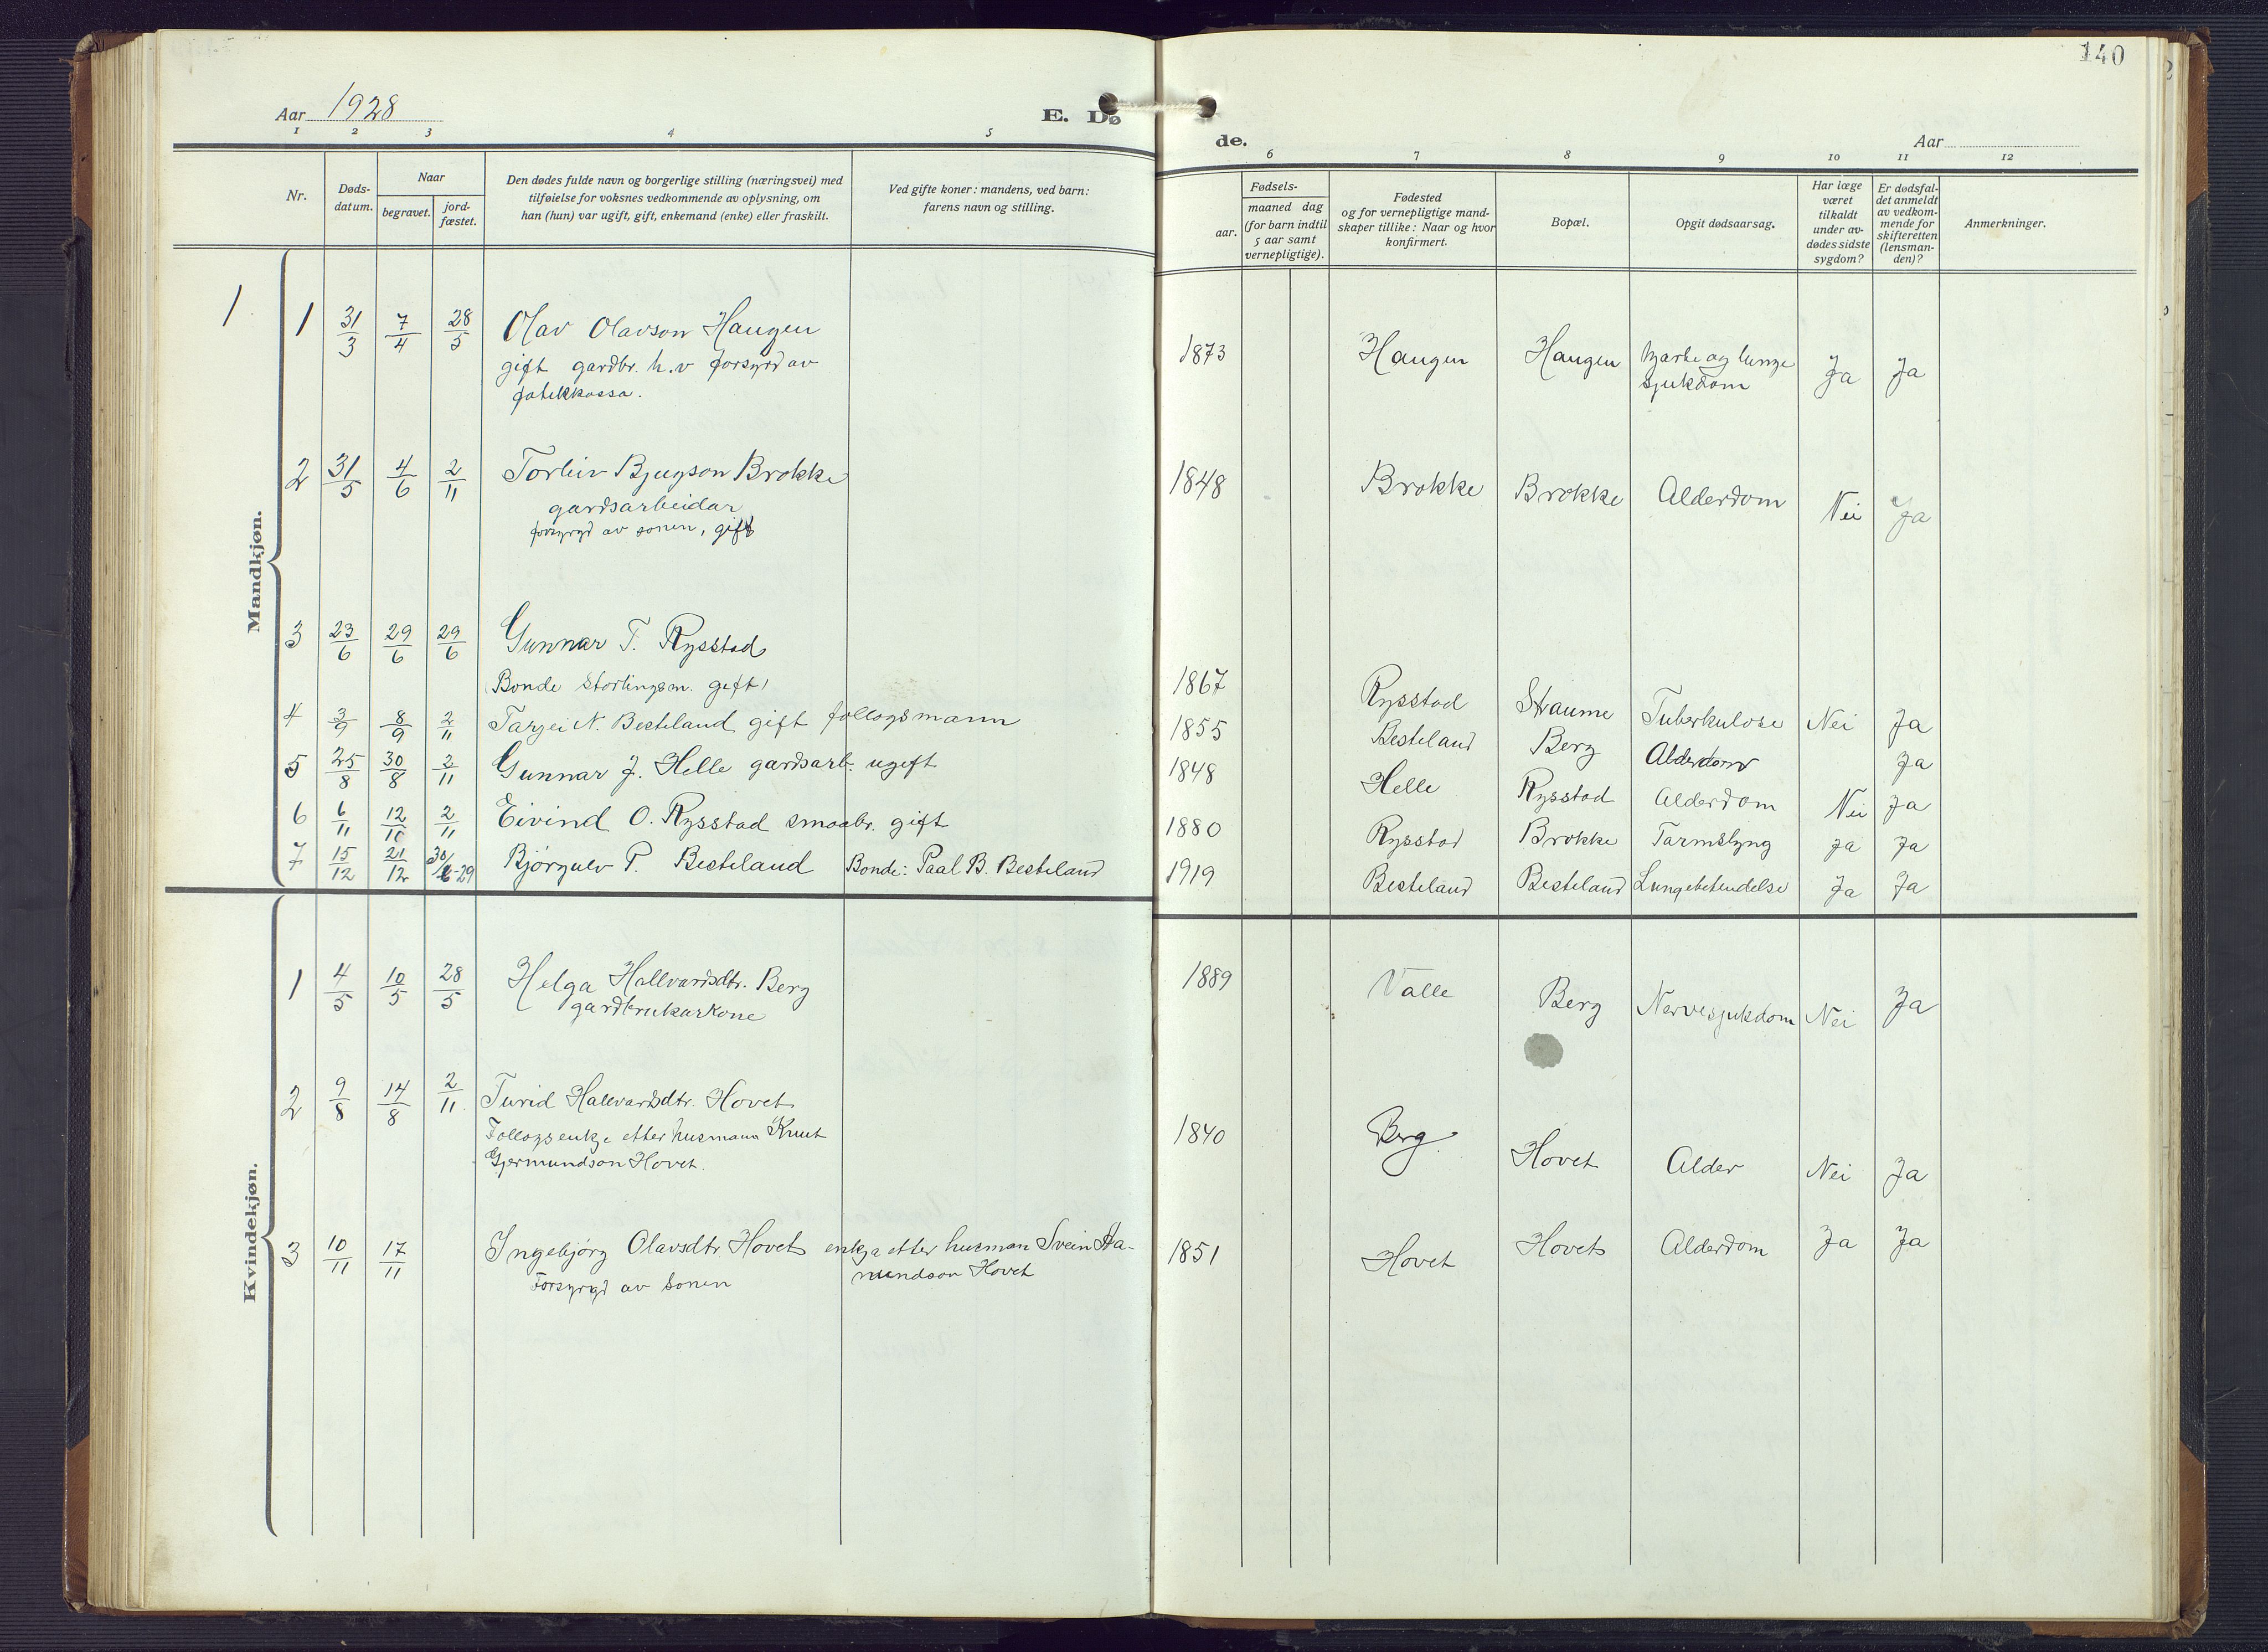 140
Aar 1928
E. Dø
de.
Aar
1 2 3 4 5
6 7 8 9 10 11 12
Nr.
Døds-
datum.
Naar
begravet.
jord-
fæstet.
Den dødes fulde navn og borgerlige stilling (næringsvei) med
tilføielse for voksnes vedkommende av oplysning, om
han (hun) var ugift, gift, enkemand (enke) eller fraskilt.
Ved gifte koner: mandens, ved barn:
farens navn og stilling.
Fødsels-
aar.
maaned dag
(for barn indtil
5 aar samt
vernepligtige).
Fødested
og for vernepligtige mand-
skaper tillike: Naar og hvor
konfirmert.
Bopæl.
Opgit dødsaarsag.
Har læge
været
tilkaldt
under av-
dødes sidste
sygdom?
Er dødsfal-
det anmeldt
av vedkom-
mende for
skifteretten
(lensman-
den)?
Anmerkninger.
Mandkjøn.
1
1 31/3 7/4 28/5 Olav Olavson Haugen 1873 Haugen Haugen hjarte og lunge Ja Ja
gift gardbr. h.v forsyrd av sjukdom
fatikkassa.
2 31/5 4/6 2/11 Torleiv Bjugson Brokke 1848 Brokke Brokke Alderdom Nei Ja
gardsarbeidar
forsyrgd av sonen, gift
3 23/6 29/6 29/6 Gunnar T. Rysstad
Bonde stortingsm. gift 1867 Rysstad Straume Tuberkulose Nei Ja
4 3/9 8/9 2/11 Tarjei N. Besteland gift follogsmann 1855 Besteland Berg Alderdom Ja
5 25/8 30/8 2/11 Gunnar J. Helle gardsarb. ugift 1848 Helle Rysstad Alderdom Nei Ja
6 6/11 12/10 2/11 Eivind O. Rysstad smaabr. gift 1880 Rysstad Brokke Tarmslyng Ja Ja
7 15/12 21/12 30/6-29 Bjørgulv P. Besteland Bonde: Paal B. Besteland 1919 Besteland Besteland Lungebetendelse Ja Ja
Kvindekjøn.
1 4/5 10/5 28/5 Helga Hallvardsdtr. Berg 1889 Valle Berg Nervesjukdom Nei Ja
gardbrukarkone
2 9/8 14/8 2/11 Turid Hallvardsdtr. Hovet 1840 Berg. Hovet Alder Nei Ja
Follogsenkje etter husmann Knut
Gjermundson Hovet.
3 10/11 17/11 Ingebjørg Olavsdtr. Hovet enkja etter husman Svein Aa- 1851 Hovet Hovet Alderdom Ja Ja
Forsyrgd av sonen mundson Hovet